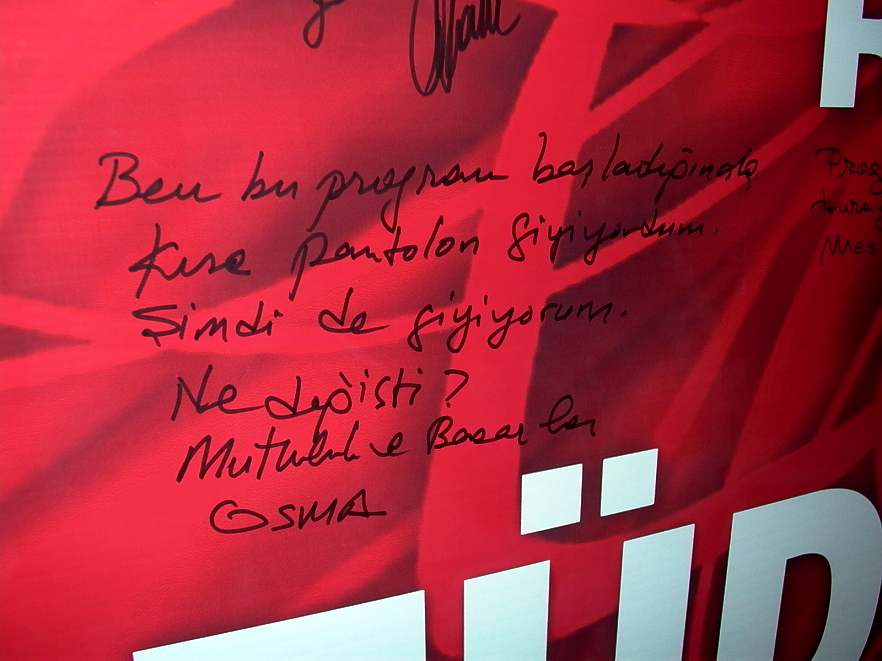 Ben bu program başladığında
Kısa pantolon giyiyordum.
Şimdi de giyiyorum.
Ne değişti?
Mutluluk ve Başarılar
OSMA
Prog
Mes
TÜR